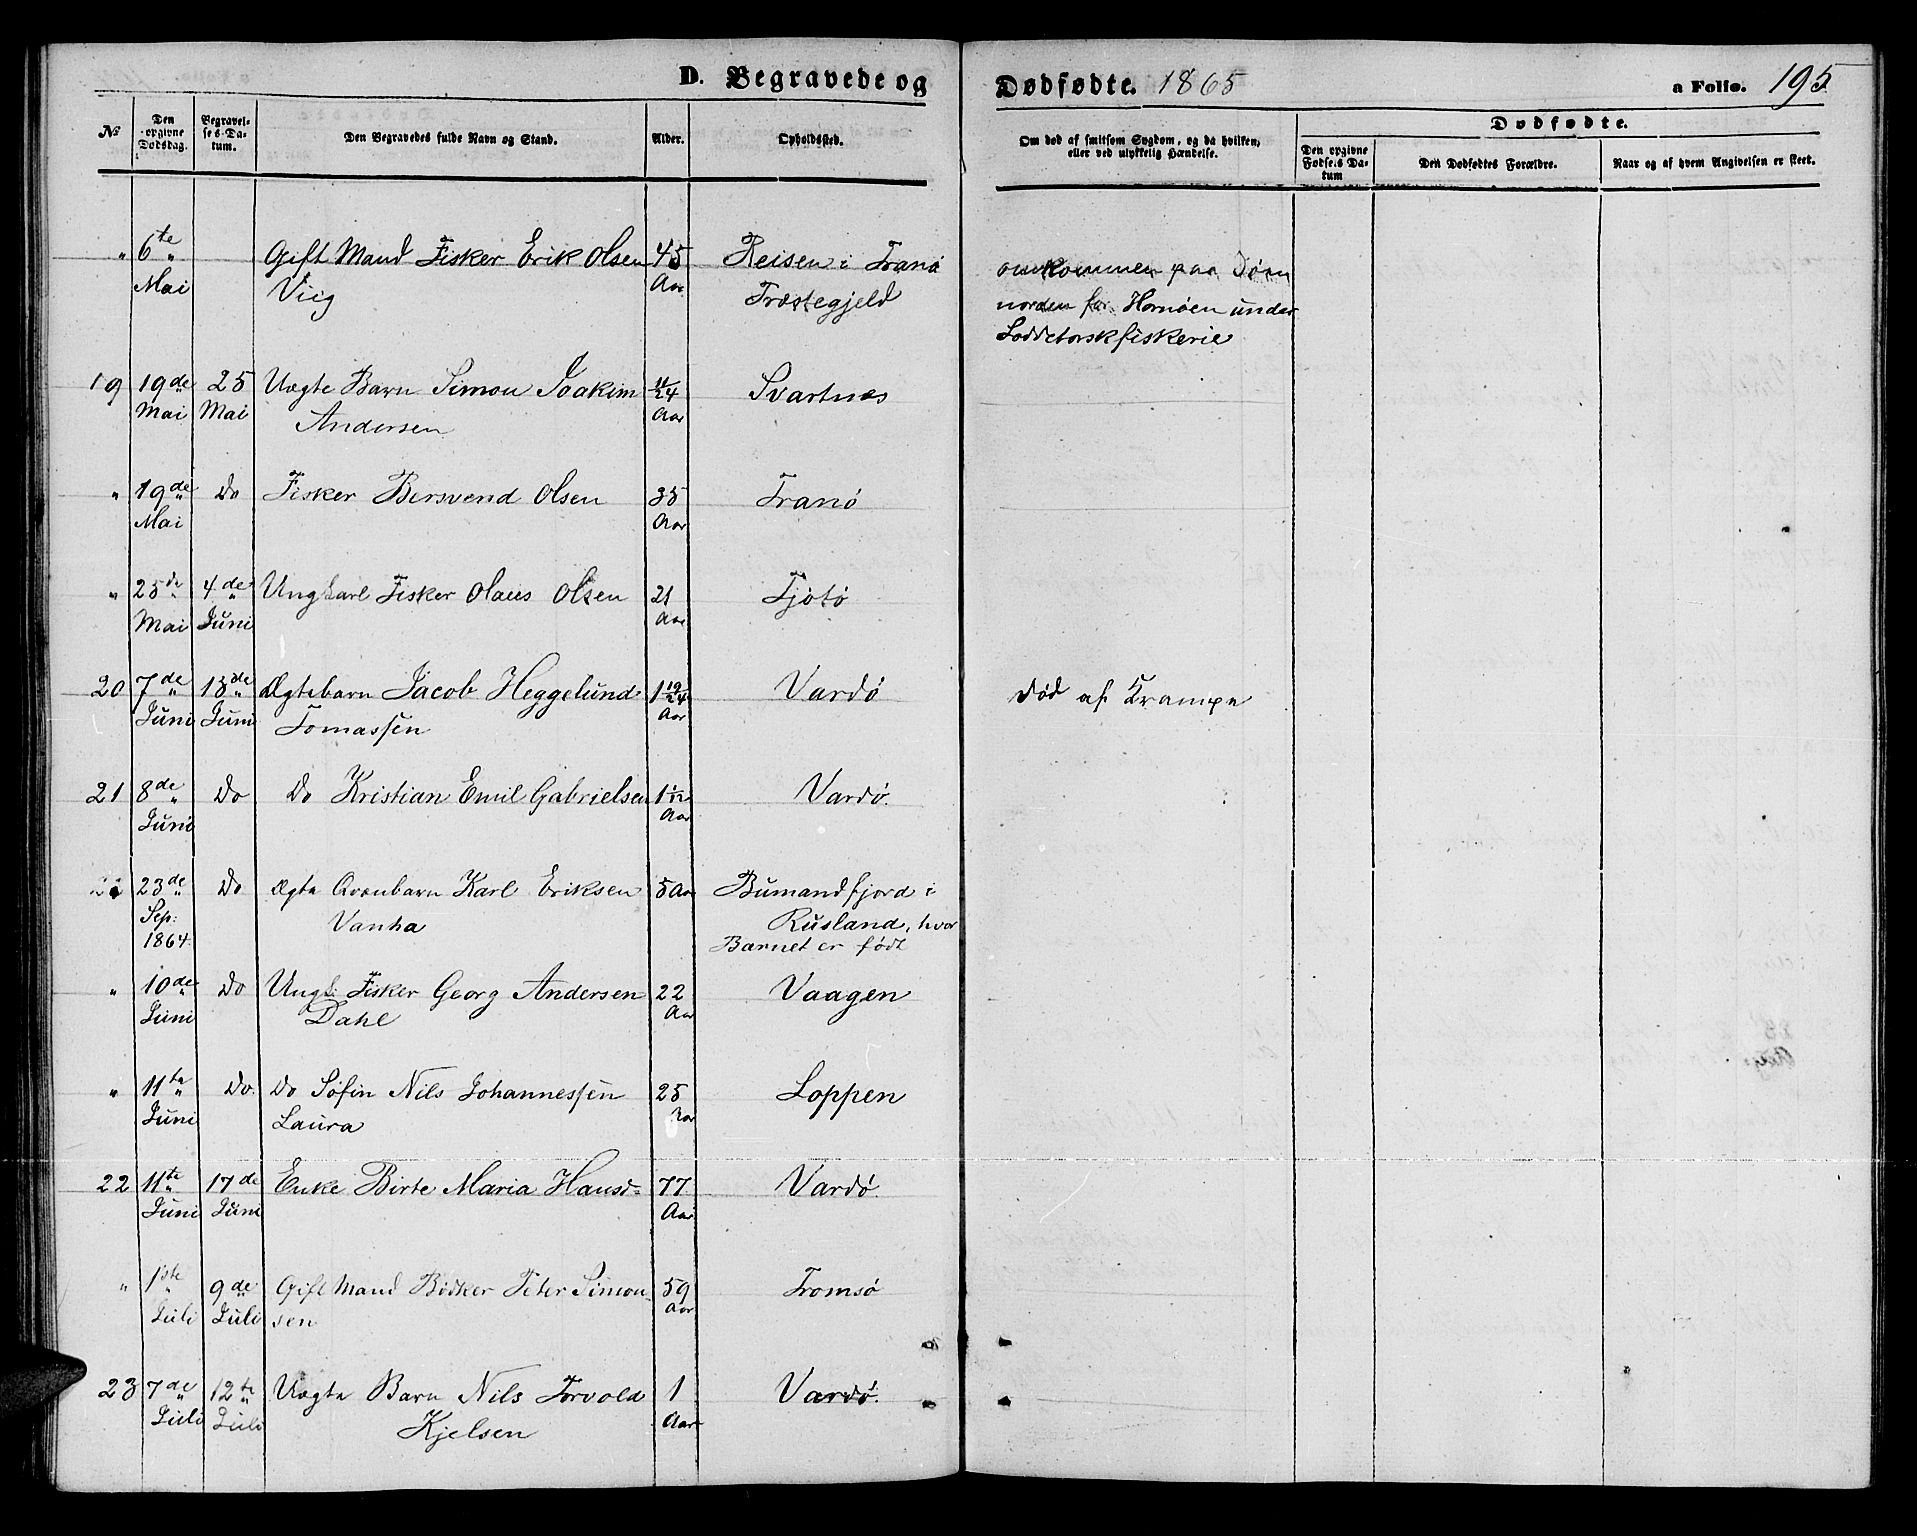 D. Begravede og Dødfødte. 1865 a Folio. 195
Dødfødte.
No
Den opgivne Dødsdag.
Begravelses-Datum.
Den Begravedes fulde Navn og Stand.
Alder.
Opholdssted.
Om død af smitsom Sygdom, og da hvilken, eller ved ulykkelig Hændelse.
Den opgivne Fødsels Datum
Den Dødfødtes Forældre.
Naar og af hvem Angivelsen er skeet.
" 6te Gift Mand Fisker Erik Olsen 45 Reisen i Tranø omkommen paa Søen
Mai Viig Aar Præstegjeld norden for Hornøen under
Loddetorskfiskerie
19 19de 25 Uægte Barn Simon Joakim 11/24 Svartnæs
Mai Mai Andersen Aar
" 19de Do Fisker Bersvend Olsen 35 Tranø
Mai Aar
" 25de 4de Ungkarl Fisker Olaus Olsen 21 Tjøtø
Mai Juni Aar
20 7de 13de Ægtebarn Jacob Heggelund 1 19/24 Vardø Død af Krampe
Juni Juni Tomassen Aar
21 8de Do Do Kristian Emil Gabrielsen 1 1/12 Vardø
Juni Aar
23de Do Ægte Qvænbarn Karl Eriksen 5 Aar Bumandfjord i
Sep: Vanha Rusland, hvor
1864 Barnet er født
" 10de Do Ungk: Fisker Georg Andersen 22 Vaagen
Juni Dahl Aar
" 11te Do Do Søfin Nils Johannessen 25 Loppen
Juni Laura Aar
22 11te 17de Enke Birte Maria Hansd: 77 Vardø
Juni Juni Aar
" 1ste 9de Gift Mand Bødker Peter Simon- 59 Tromsø
Juli Juli sen Aar
23 7de 12te Uægte Barn Nils Torvold 1 Vardø.
Juli Juli Kjelsen Aar